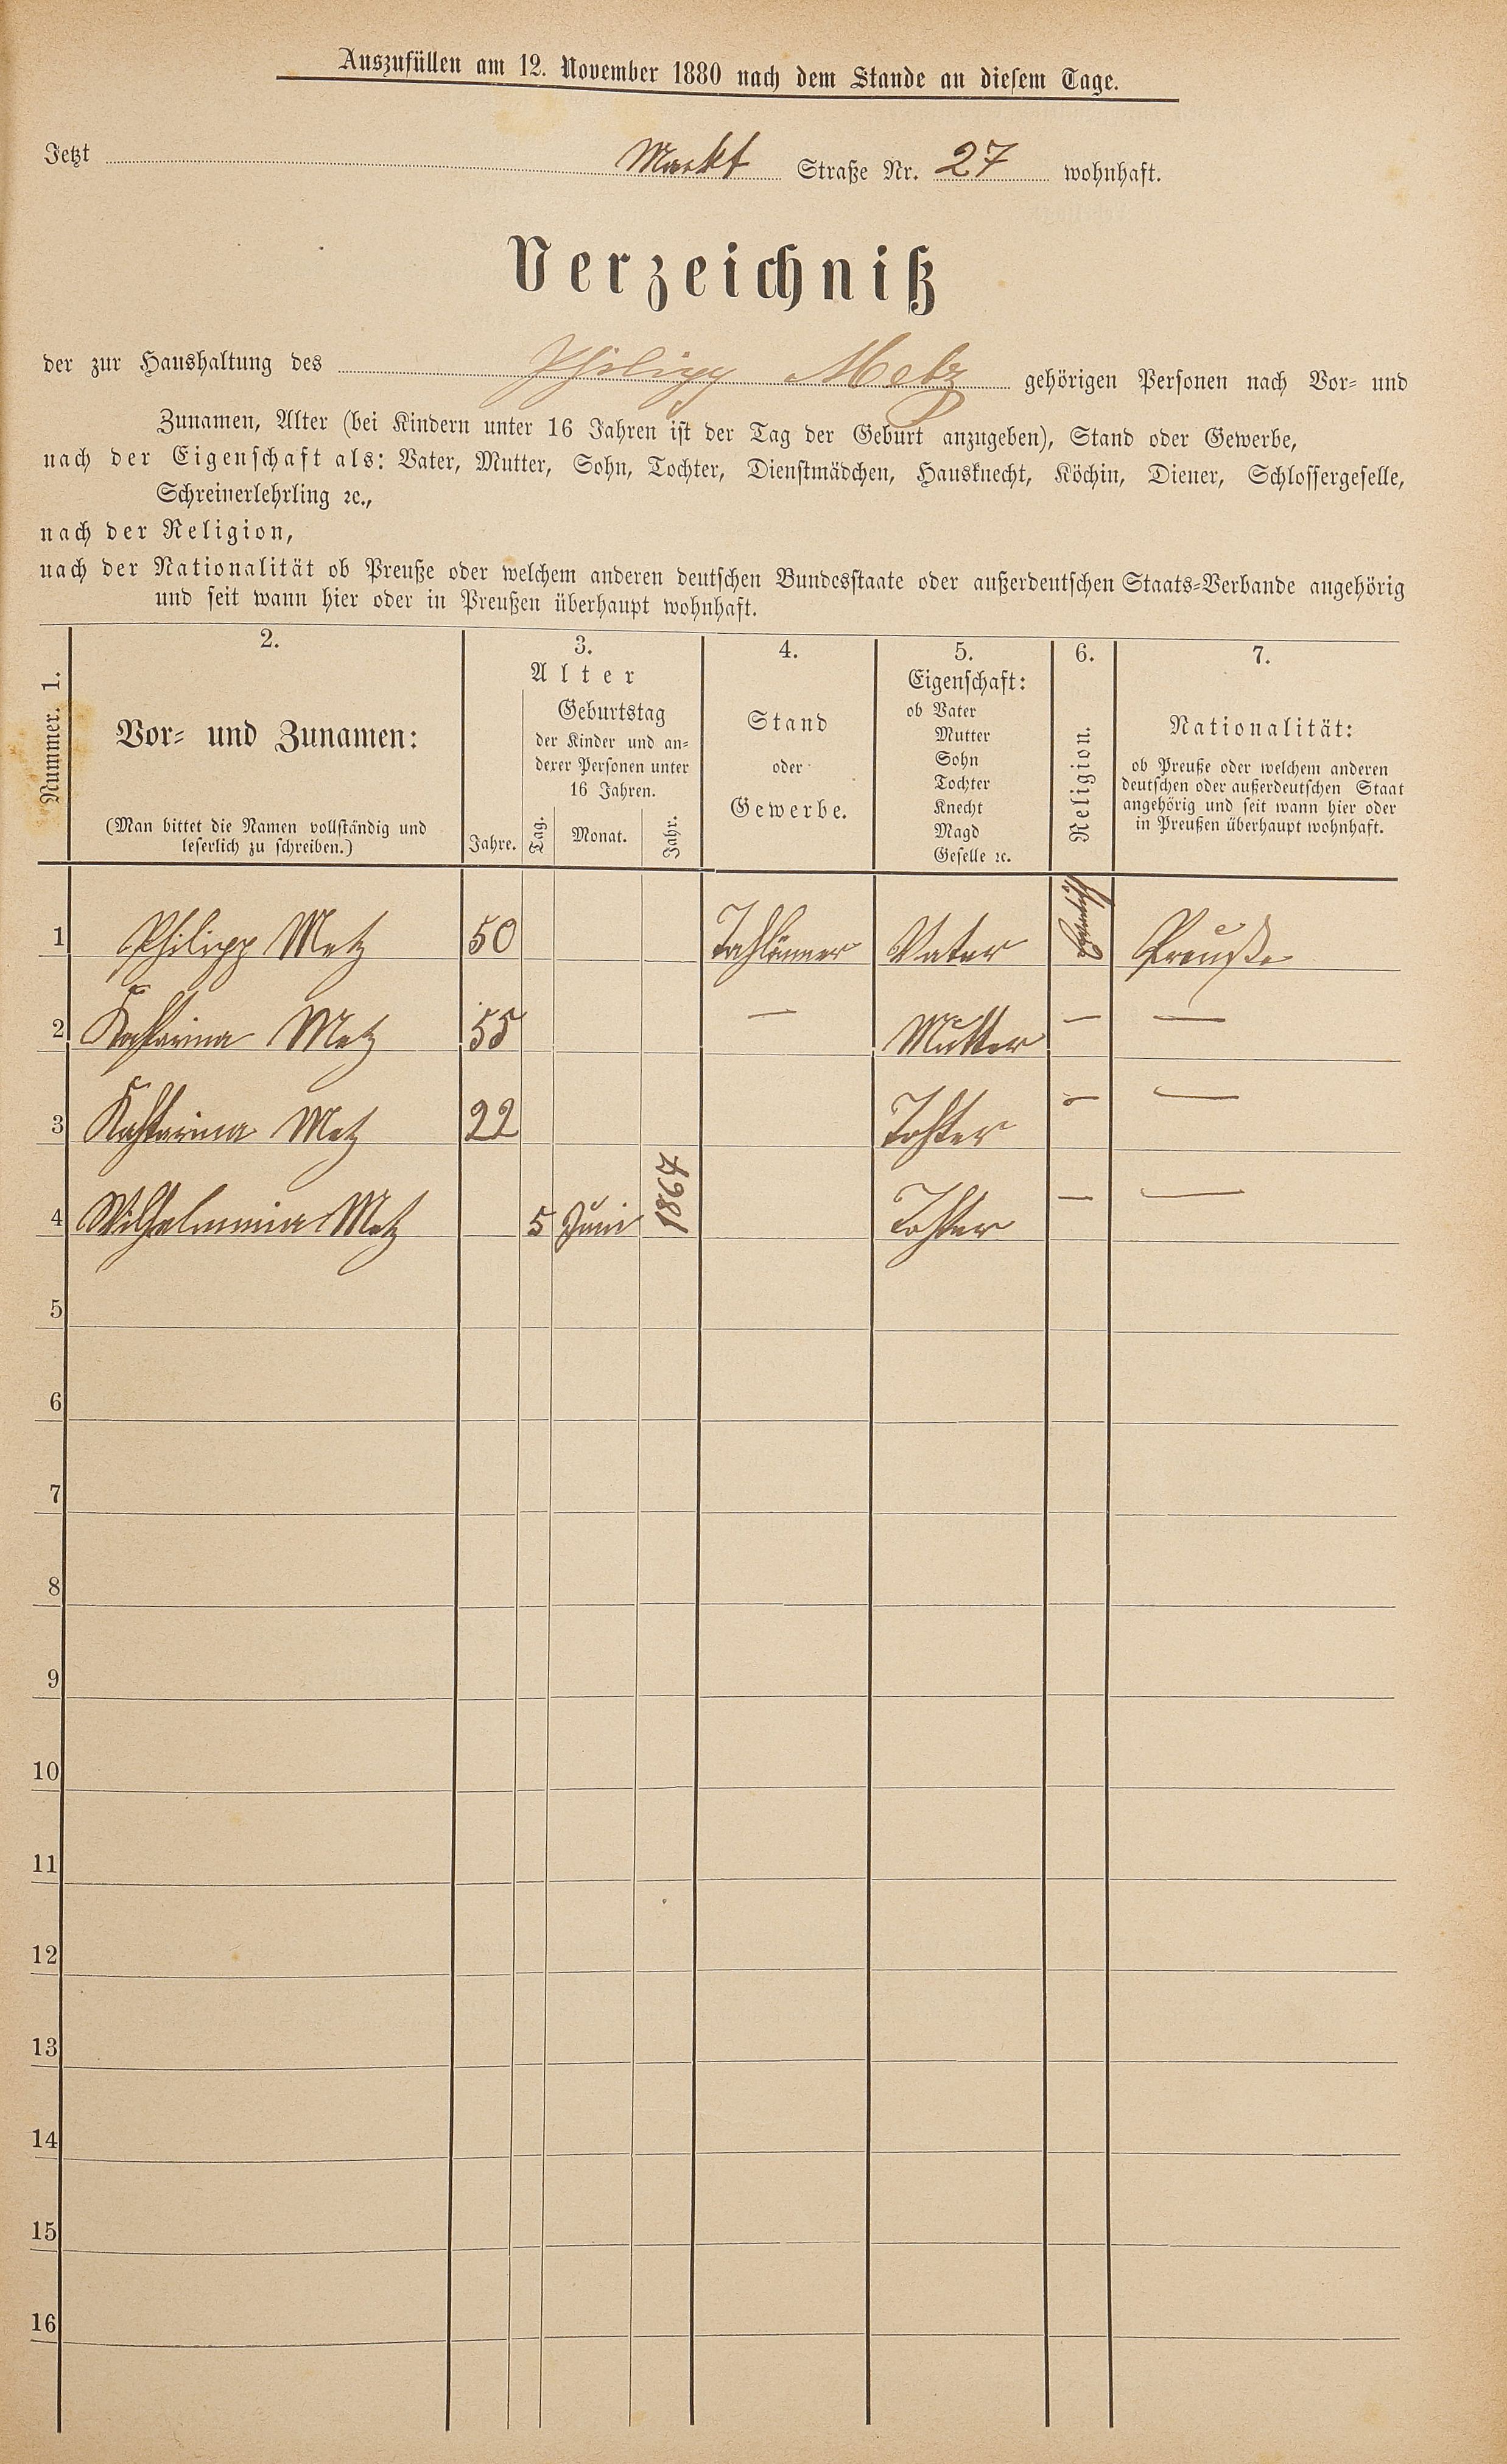 Auszufüllen am 12. November 1880 nach dem Stande an diesem Tage.
Jetzt Markt Straße Nr. 27 wohnhaft.
Verzeichniß
der zur Haushaltung des Philipp Metz gehörigen Personen nach Vor- und
Zunamen, Alter (bei Kindern unter 16 Jahren ist der Tag der Geburt anzugeben), Stand oder Gewerbe,
nach der Eigenschaft als: Vater, Mutter, Sohn, Tochter, Dienstmädchen, Hausknecht, Köchin, Diener, Schlossergeselle,
Schreinerlehrling ꝛc.,
nach der Religion,
nach der Nationalität ob Preuße oder welchem anderen deutschen Bundesstaate oder außerdeutschen Staats-Verbande angehörig
und seit wann hier oder in Preußen überhaupt wohnhaft.
Nummer. 1.
2.
Vor- und Zunamen:
(Man bittet die Namen vollständig und
leserlich zu schreiben.)
3.
Alter
Jahre.
Geburtstag
der Kinder und an-
derer Personen unter
16 Jahren.
Tag. Monat. Jahr.
4.
Stand
oder
Gewerbe.
5.
Eigenschaft:
ob Vater
Mutter
Sohn
Tochter
Knecht
Magd
Geselle ꝛc.
6.
Religion.
7.
Nationalität:
ob Preuße oder welchem anderen
deutschen oder außerdeutschen Staat
angehörig und seit wann hier oder
in Preußen überhaupt wohnhaft.
1 Philipp Metz 50 Vater Preuße
2 Katharina Metz 55 — Mutter — —
3 Katharina Metz 22 Tochter — —
4 Wilhelmina Metz 5 Juni 1864 Tochter — —
5
6
7
8
9
10
11
12
13
14
15
16